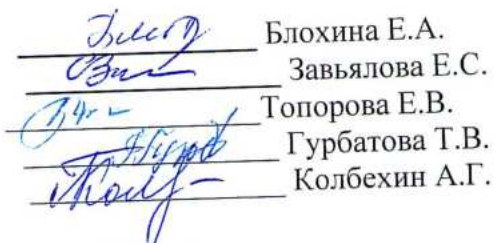 Блохина Е.А.
Завьялова Е.С.
Топорова Е.В.
Гурбатова Т.В.
Колбехин А.Г.